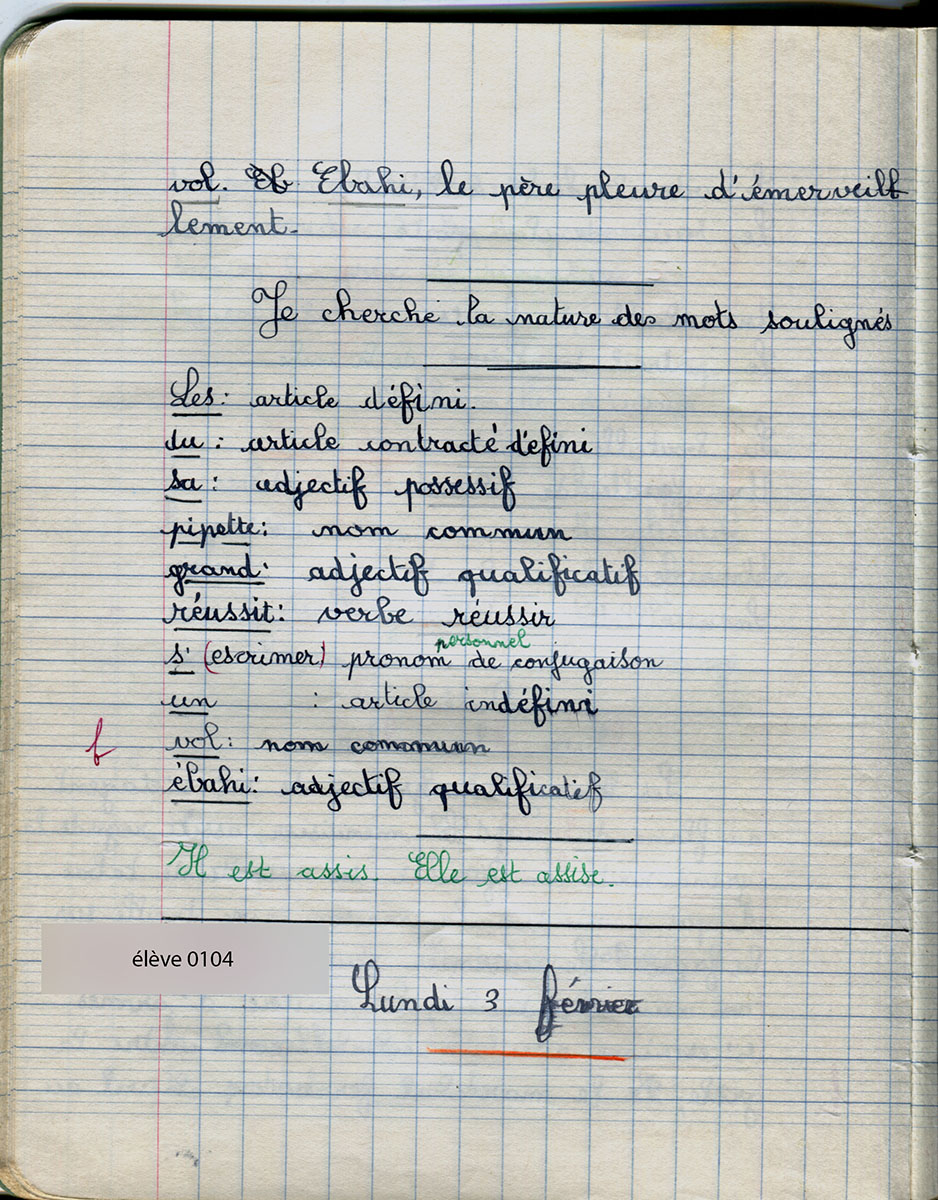 vol. Eb Ebahi, le père pleure d'émerveill
lement.
Je cherche la nature des mots soulignés
Les : article défini.
du : article contracté défini
sa : adjectif possessif
pipette : nom commun
grand : adjectif qualificatif
réussit : verbe réussir
personnel
s' (escrimer) pronom de conjugaison
un : article indéfini
f vol : nom commun
ébahi : adjectif qualificatif
Il est assis. Elle est assise.
élève 0104
Lundi 3 février